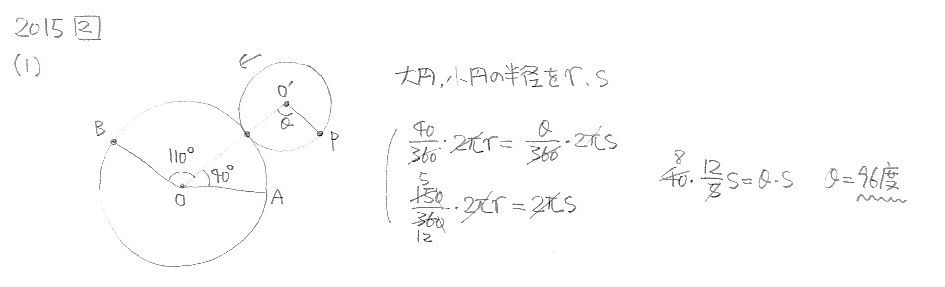 2015 2
(1)
O'
θ
P
B
110°
40°
O
A
大円,小円の半径をr、s
40/360・2πr=θ/360・2πs
5
150/360・2πr=2πs
12
8
40・12/5 s=θ・s θ=96度